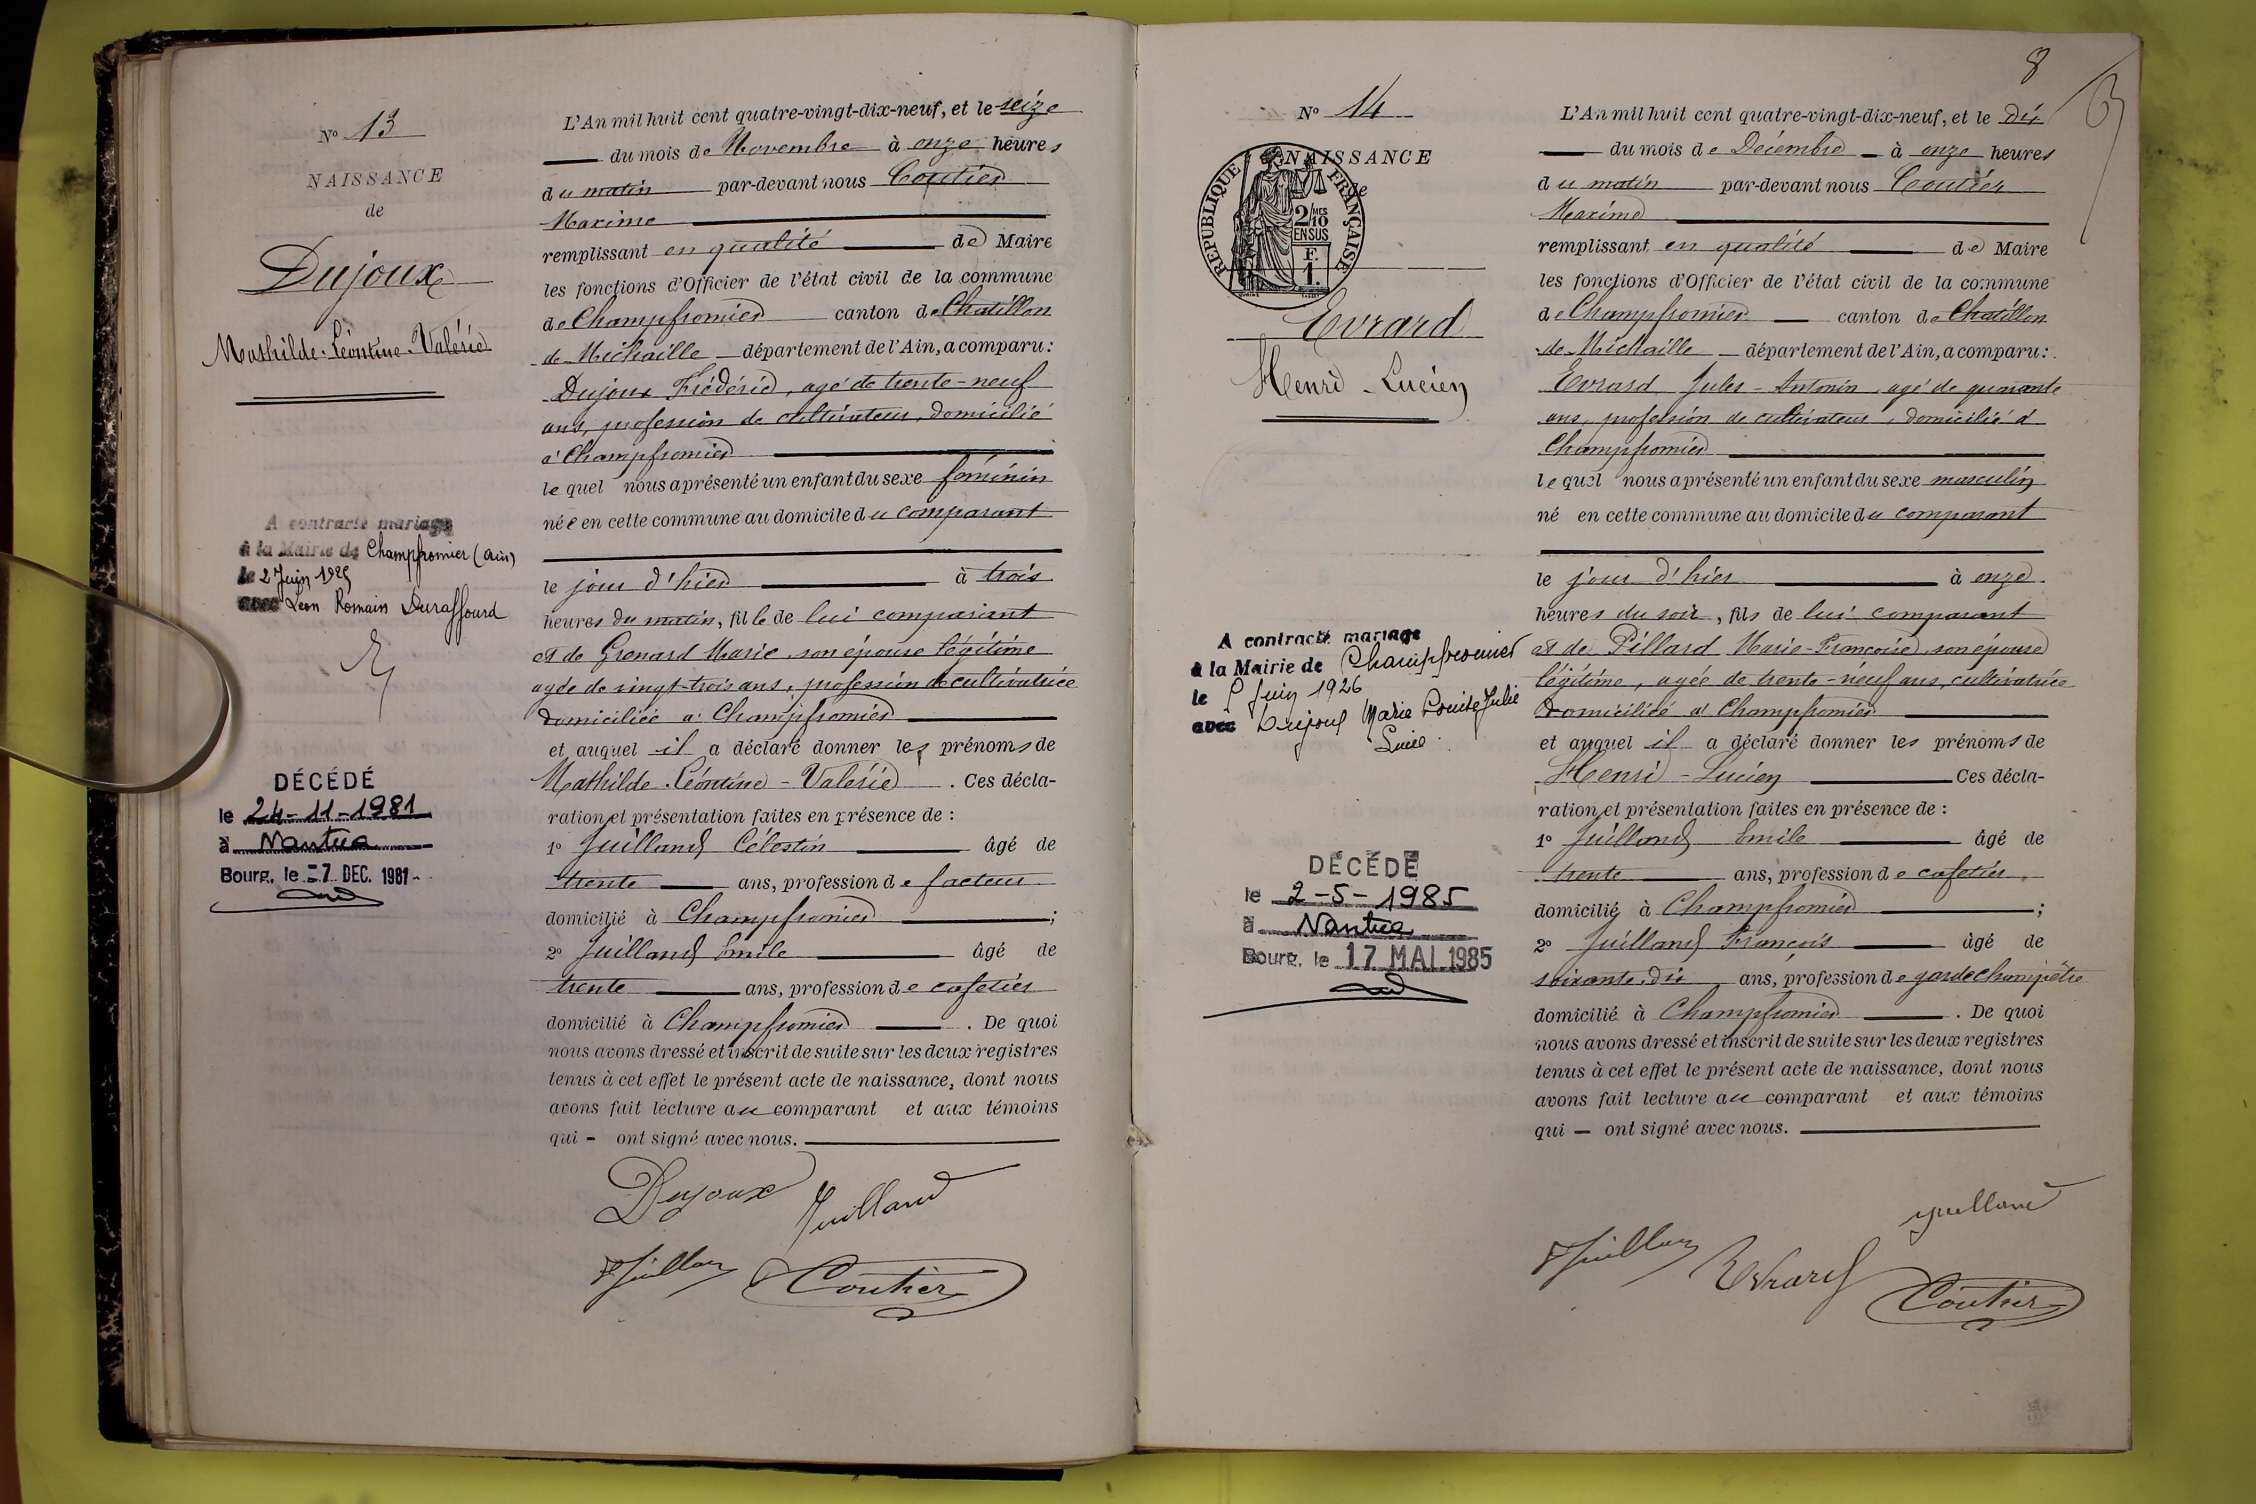 Nº 13
NAISSANCE
de
Dujoux
Mathilde-Léontine-Valérie
A contracté mariage
à la Mairie de Champfromier (Ain)
le 2 Juin 1925
avec Léon Romain Duraffourd
DÉCÉDÉ
le 24-11-1981
à Nantua
Bourg, le -7 DEC. 1981
L'An mil huit cent quatre-vingt-dix-neuf, et le seize
du mois de Novembre à onze heures
du matin par-devant nous Coutier
Maxime
remplissant en qualité de Maire
les fonctions d'Officier de l'état civil de la commune
de Champfromier canton de Chatillon
de Michaille département de l'Ain, a comparu:
Dujoux Frédéric, agé de trente-neuf
ans, profession de cultivateur, domicilié
à Champfromier
lequel nous a présenté un enfant du sexe féminin
née en cette commune au domicile du comparant
le jour d'hier à trois
heures du matin, fille de lui comparant
et de Grenard Marie son épouse légitime
agée de vingt-trois ans, profession de cultivatrice
domiciliée à Champfromier
et auquel il a déclaré donner les prénoms de
Mathilde-Léontine-Valérie. Ces décla-
ration et présentation faites en présence de :
1º Juilland Célestin âgé de
trente ans, profession de facteur
domicilié à Champfromier ;
2º Juilland Emile âgé de
trente ans, profession de cafetier
domicilié à Champfromier . De quoi
nous avons dressé et inscrit de suite sur les deux registres
tenus à cet effet le présent acte de naissance, dont nous
avons fait lecture au comparant et aux témoins
qui - ont signé avec nous.
Dujoux Juilland
Juilland Coutier
8
Nº 14
NAISSANCE
de
RÉPUBLIQUE FRANÇAISE
2/10 MES
EN SUS
F.
1.
Evrard
Henri-Lucien
A contracté mariage
à la Mairie de Champfromier
le 5 Juin 1926
avec Dujoux Marie Louise Julie
Lucie.
DÉCÉDÉ
le 2-5-1985
à Nantua
Bourg, le 17 MAI 1985
L'An mil huit cent quatre-vingt-dix-neuf, et le dix
du mois de Décembre à onze heures
du matin par-devant nous Coutier
Maxime
remplissant en qualité de Maire
les fonctions d'Officier de l'état civil de la commune
de Champfromier canton de Chatillon
de Michaille département de l'Ain, a comparu:
Evrard Jules-Antonin agé de quarante
ans, profession de cultivateur, domicilié à
Champfromier
lequel nous a présenté un enfant du sexe masculin
né en cette commune au domicile du comparant
le jour d'hier à onze
heures du soir, fils de lui comparant
et de Pillard Marie-Françoise son épouse
légitime, agée de trente-neuf ans, cultivatrice
domiciliée à Champfromier
et auquel il a déclaré donner les prénoms de
Henri-Lucien Ces décla-
ration et présentation faites en présence de :
1º Juilland Emile âgé de
trente ans, profession de cafetier
domicilié à Champfromier ;
2º Juilland François âgé de
soixante-dix ans, profession de garde champêtre
domicilié à Champfromier . De quoi
nous avons dressé et inscrit de suite sur les deux registres
tenus à cet effet le présent acte de naissance, dont nous
avons fait lecture au comparant et aux témoins
qui - ont signé avec nous.
Juilland
Juilland Evrard Coutier